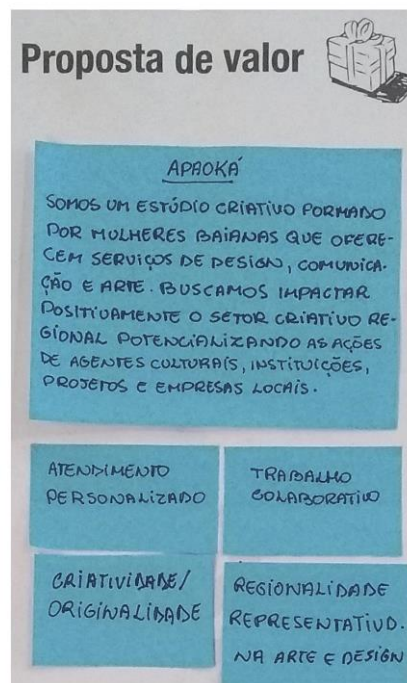 Proposta de valor
APAOKÁ
SOMOS UM ESTÚDIO CRIATIVO FORMADO
POR MULHERES BAIANAS QUE OFERE-
CEM SERVIÇOS DE DESIGN, COMUNICA-
ÇÃO E ARTE. BUSCAMOS IMPACTAR
POSITIVAMENTE O SETOR CRIATIVO RE-
GIONAL POTENCIALIZANDO AS AÇÕES
DE AGENTES CULTURAIS, INSTITUIÇÕES,
PROJETOS E EMPRESAS LOCAIS.
ATENDIMENTO
PERSONALIZADO
TRABALHO
COLABORATIVO
CRIATIVIDADE/
ORIGINALIDADE
REGIONALIDADE
REPRESENTATIVID.
NA ARTE E DESIGN